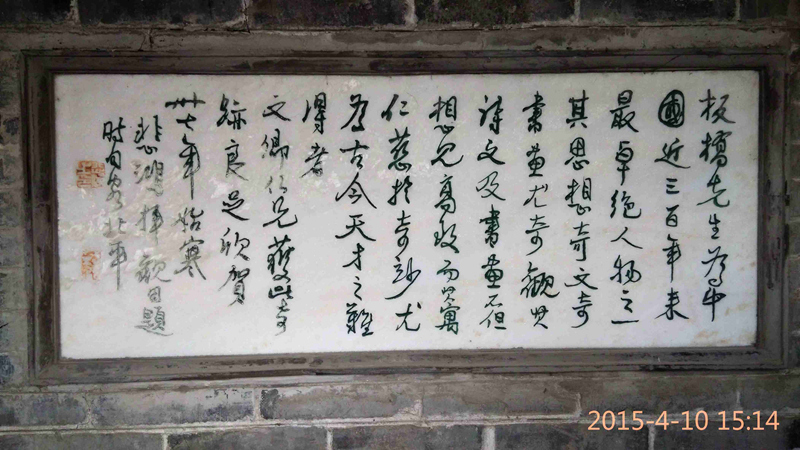 板橋先生為中
國近三百年來
最卓絕人物之一
其思想奇文奇
書畫尤奇觀其
詩文及書畫不但
想見高致而其寓
仁慈於奇妙尤
為古今天才之難
得者
文卿仁兄獲此奇
跡良足欣賀
卅七年始寒
悲鴻拜觀因題
時同客北平
2015-4-10 15:14